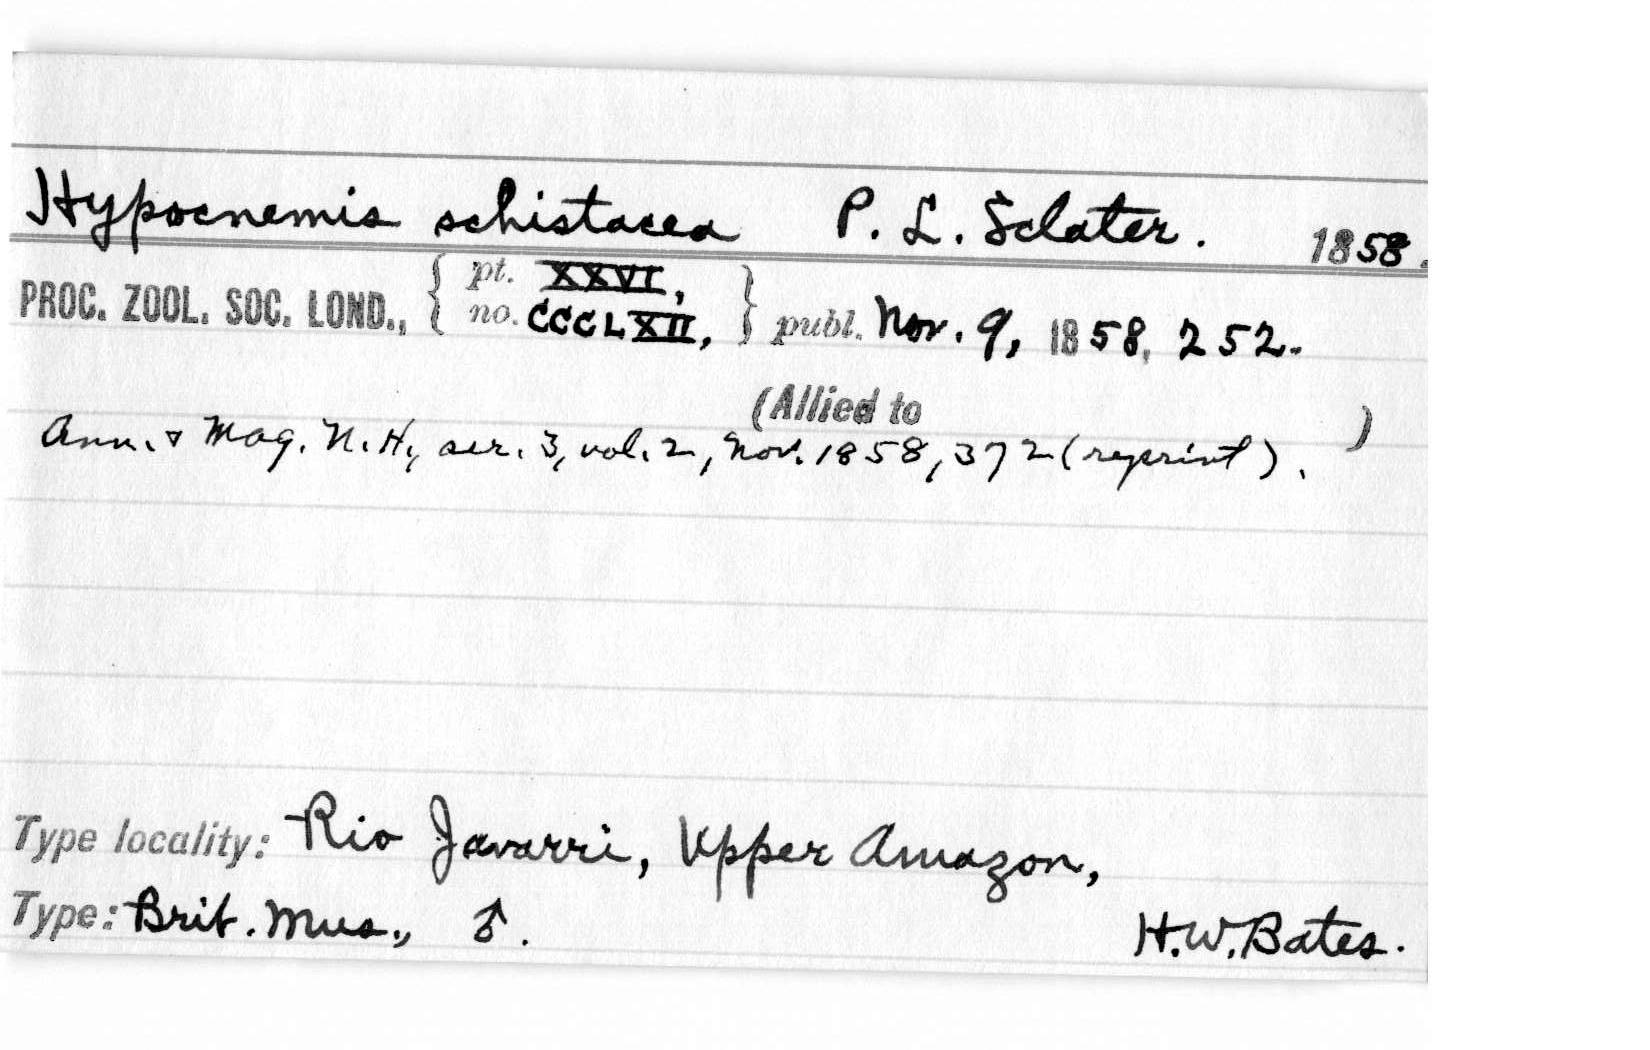 Hypocnemis schistacea P. L. Sclater. 1858.
PROC. ZOOL. SOC. LOND., { pt. XXVI, no. CCCLXII, } publ. Nov. 9, 1858, 252.
(Allied to )
Ann. & Mag. N. H., ser. 3, vol. 2, Nov. 1858, 372 (reprint).
Type locality: Rio Javarri, Upper Amazon,
Type: Brit. Mus., ♂. H. W. Bates.